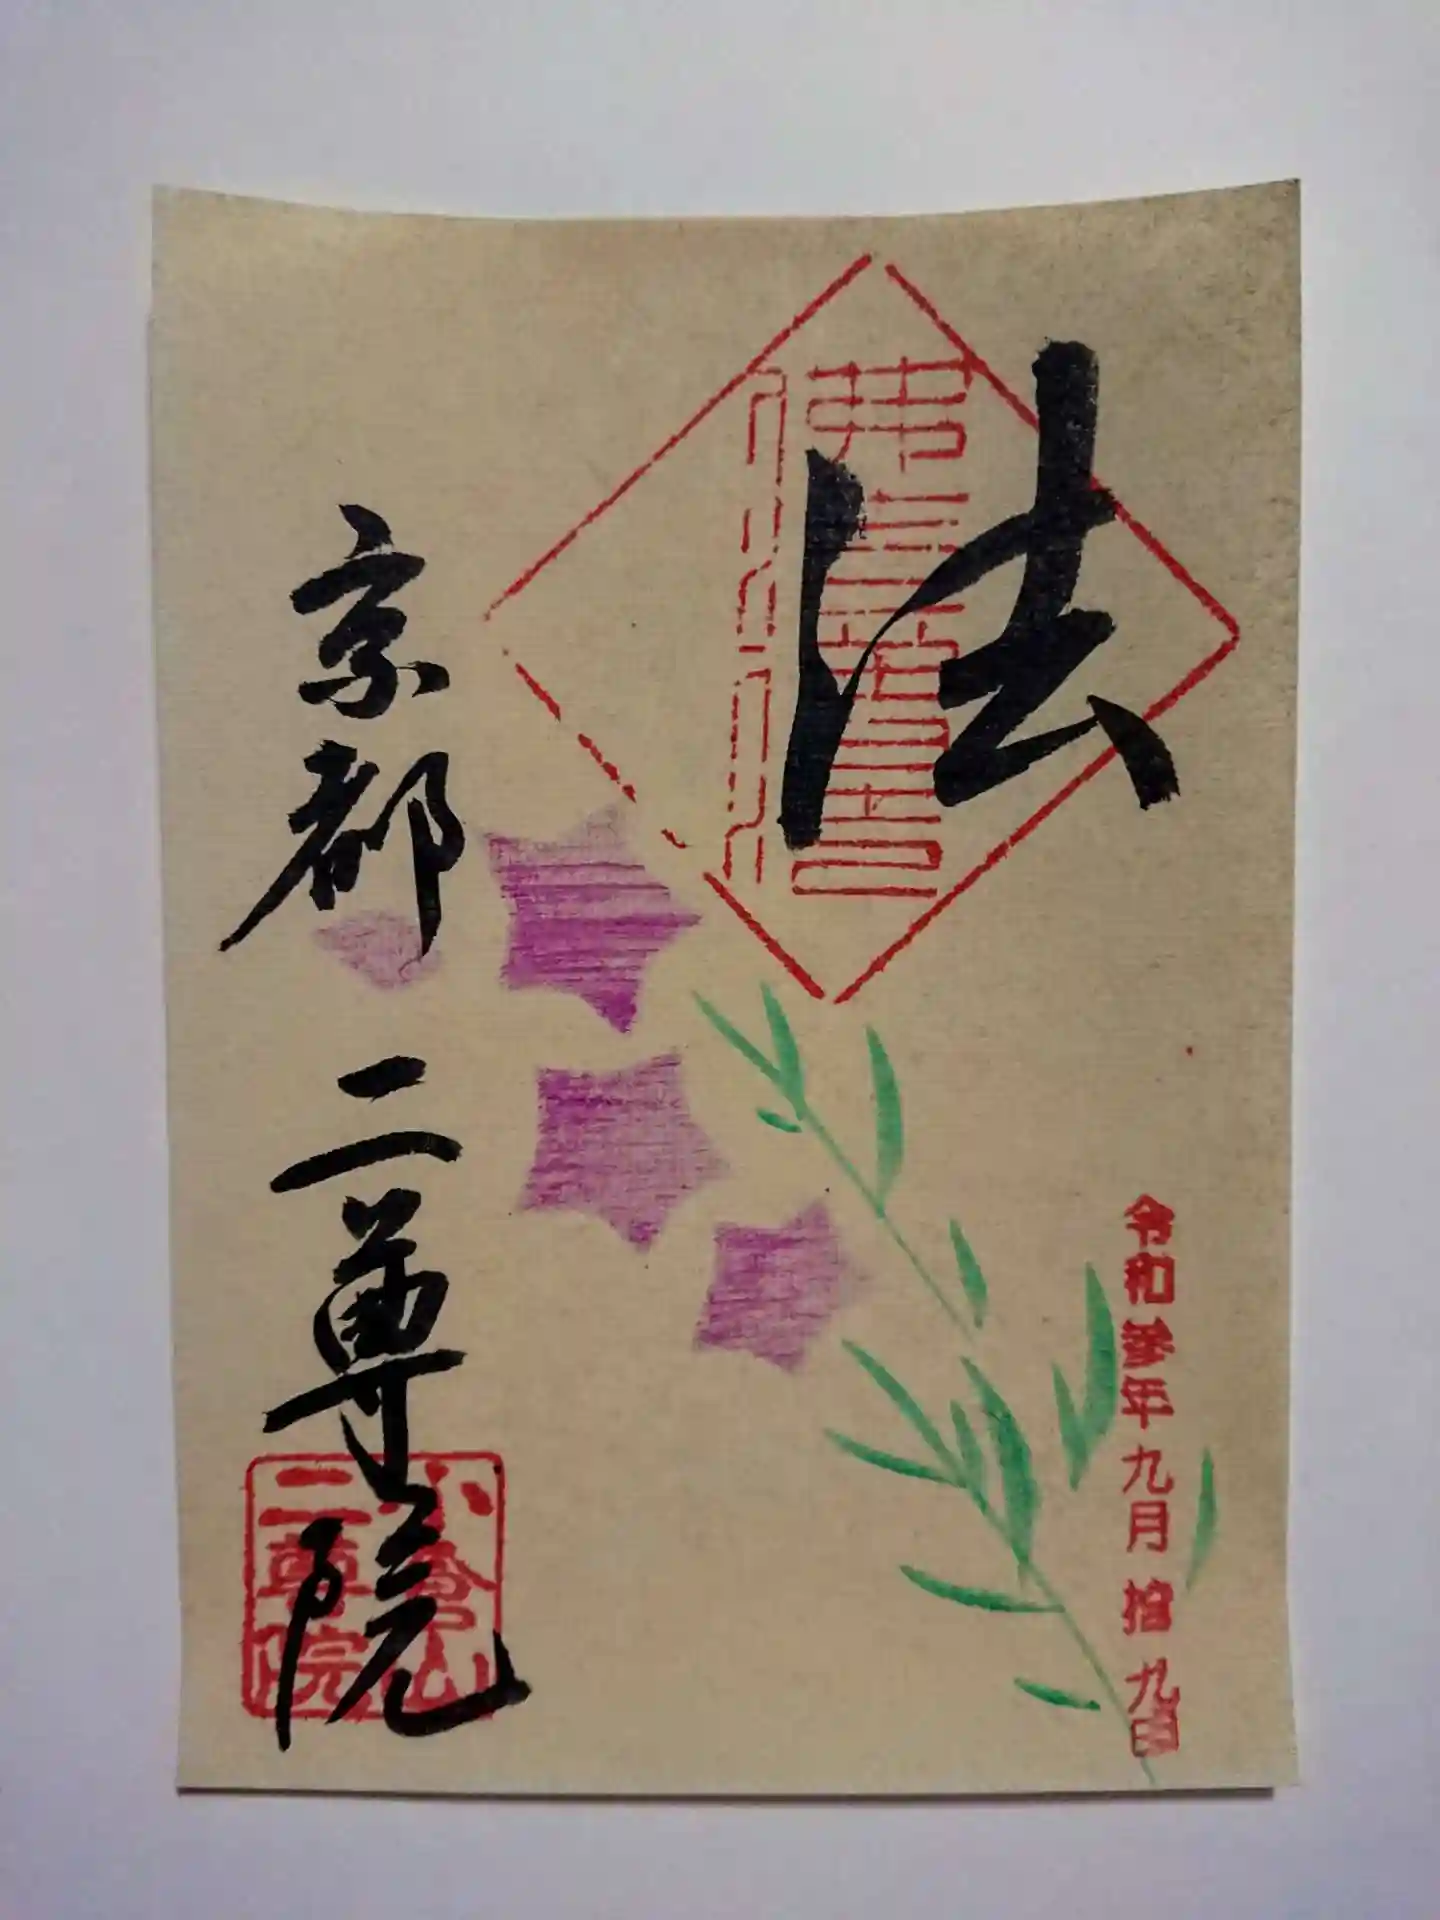 法
令和参年九月拾九日
京都 二尊院
小倉山
二尊院